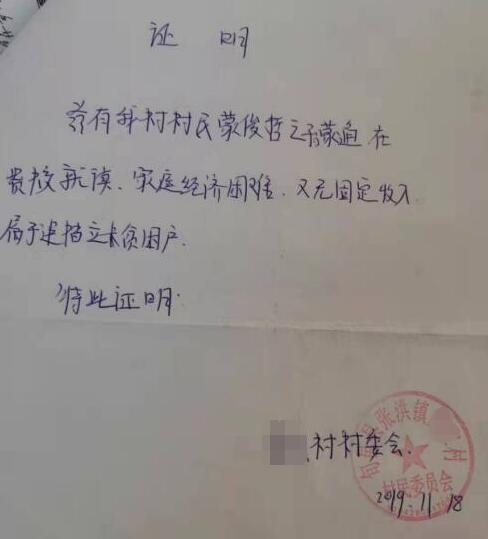 证 明
兹有我村村民蒙俊哲之子蒙通在
贵校就读、家庭经济困难、又无固定收入
属于建档立卡贫困户.
特此证明.
村村委会.
县张洪镇 村
村民委员会
2019.11.18